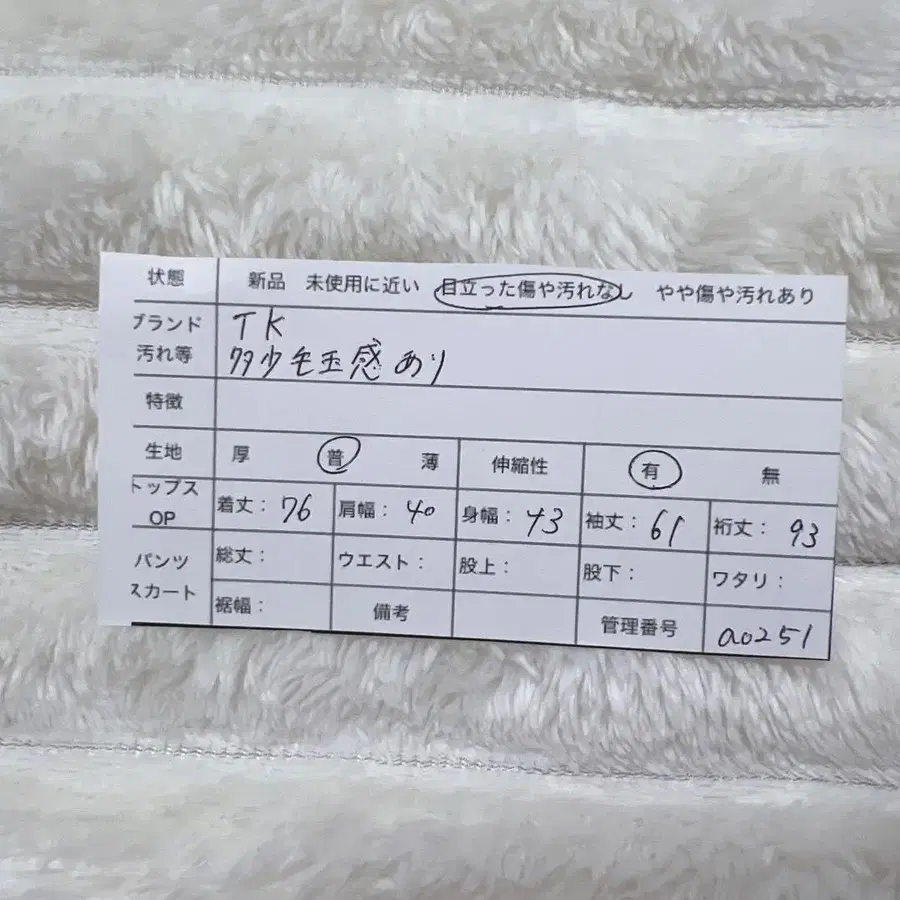 状態 新品 未使用に近い 目立った傷や汚れなし やや傷や汚れあり
ブランド TK
汚れ等 多少毛玉感あり
特徴
生地 厚 普 薄 伸縮性 有 無
トップス
OP 着丈: 76 肩幅: 40 身幅: 43 袖丈: 61 裄丈: 93
パンツ 総丈: ウエスト: 股上: 股下: ワタリ:
スカート 裾幅: 備考 管理番号 a0251